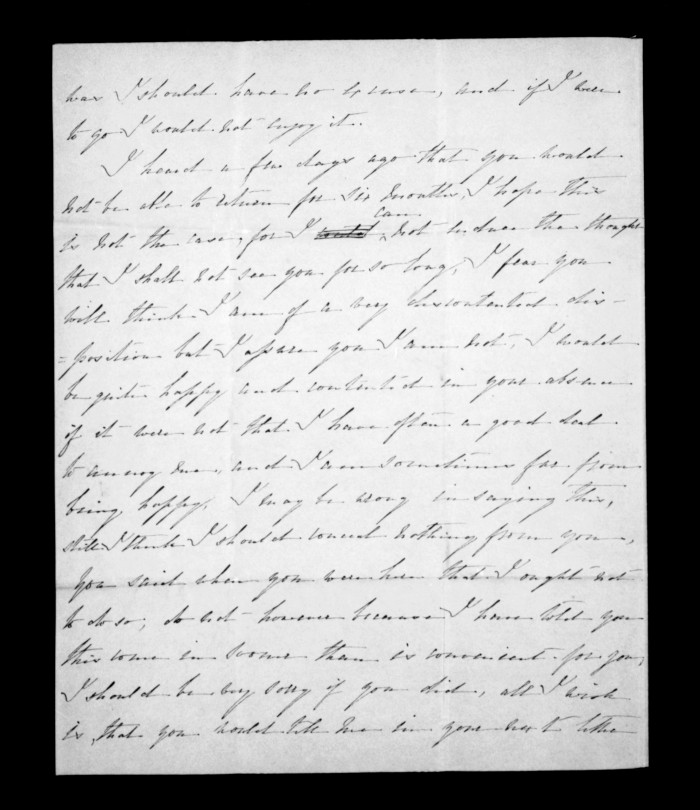 was I should have no excuse, and if I were
to go I would not enjoy it.
I heard a few days ago that you would
not be able to return for six months, I hope this
is not the case, for I can not endure the thought
that I shall not see you for so long, I fear you
will think I am of a very discontented dis-
=position but I assure you I am not, I would
be quite happy and contented in your absence
if it were not that I have often a good deal
to annoy me, and I am sometimes far from
being happy. I may be wrong in saying this,
still I think I should conceal nothing from you,
you said when you were here that I ought not
to do so, do not however because I have told you
this come in sooner than is convenient for you,
I should be very sorry if you did, all I wish
is that you would tell me in your next letter